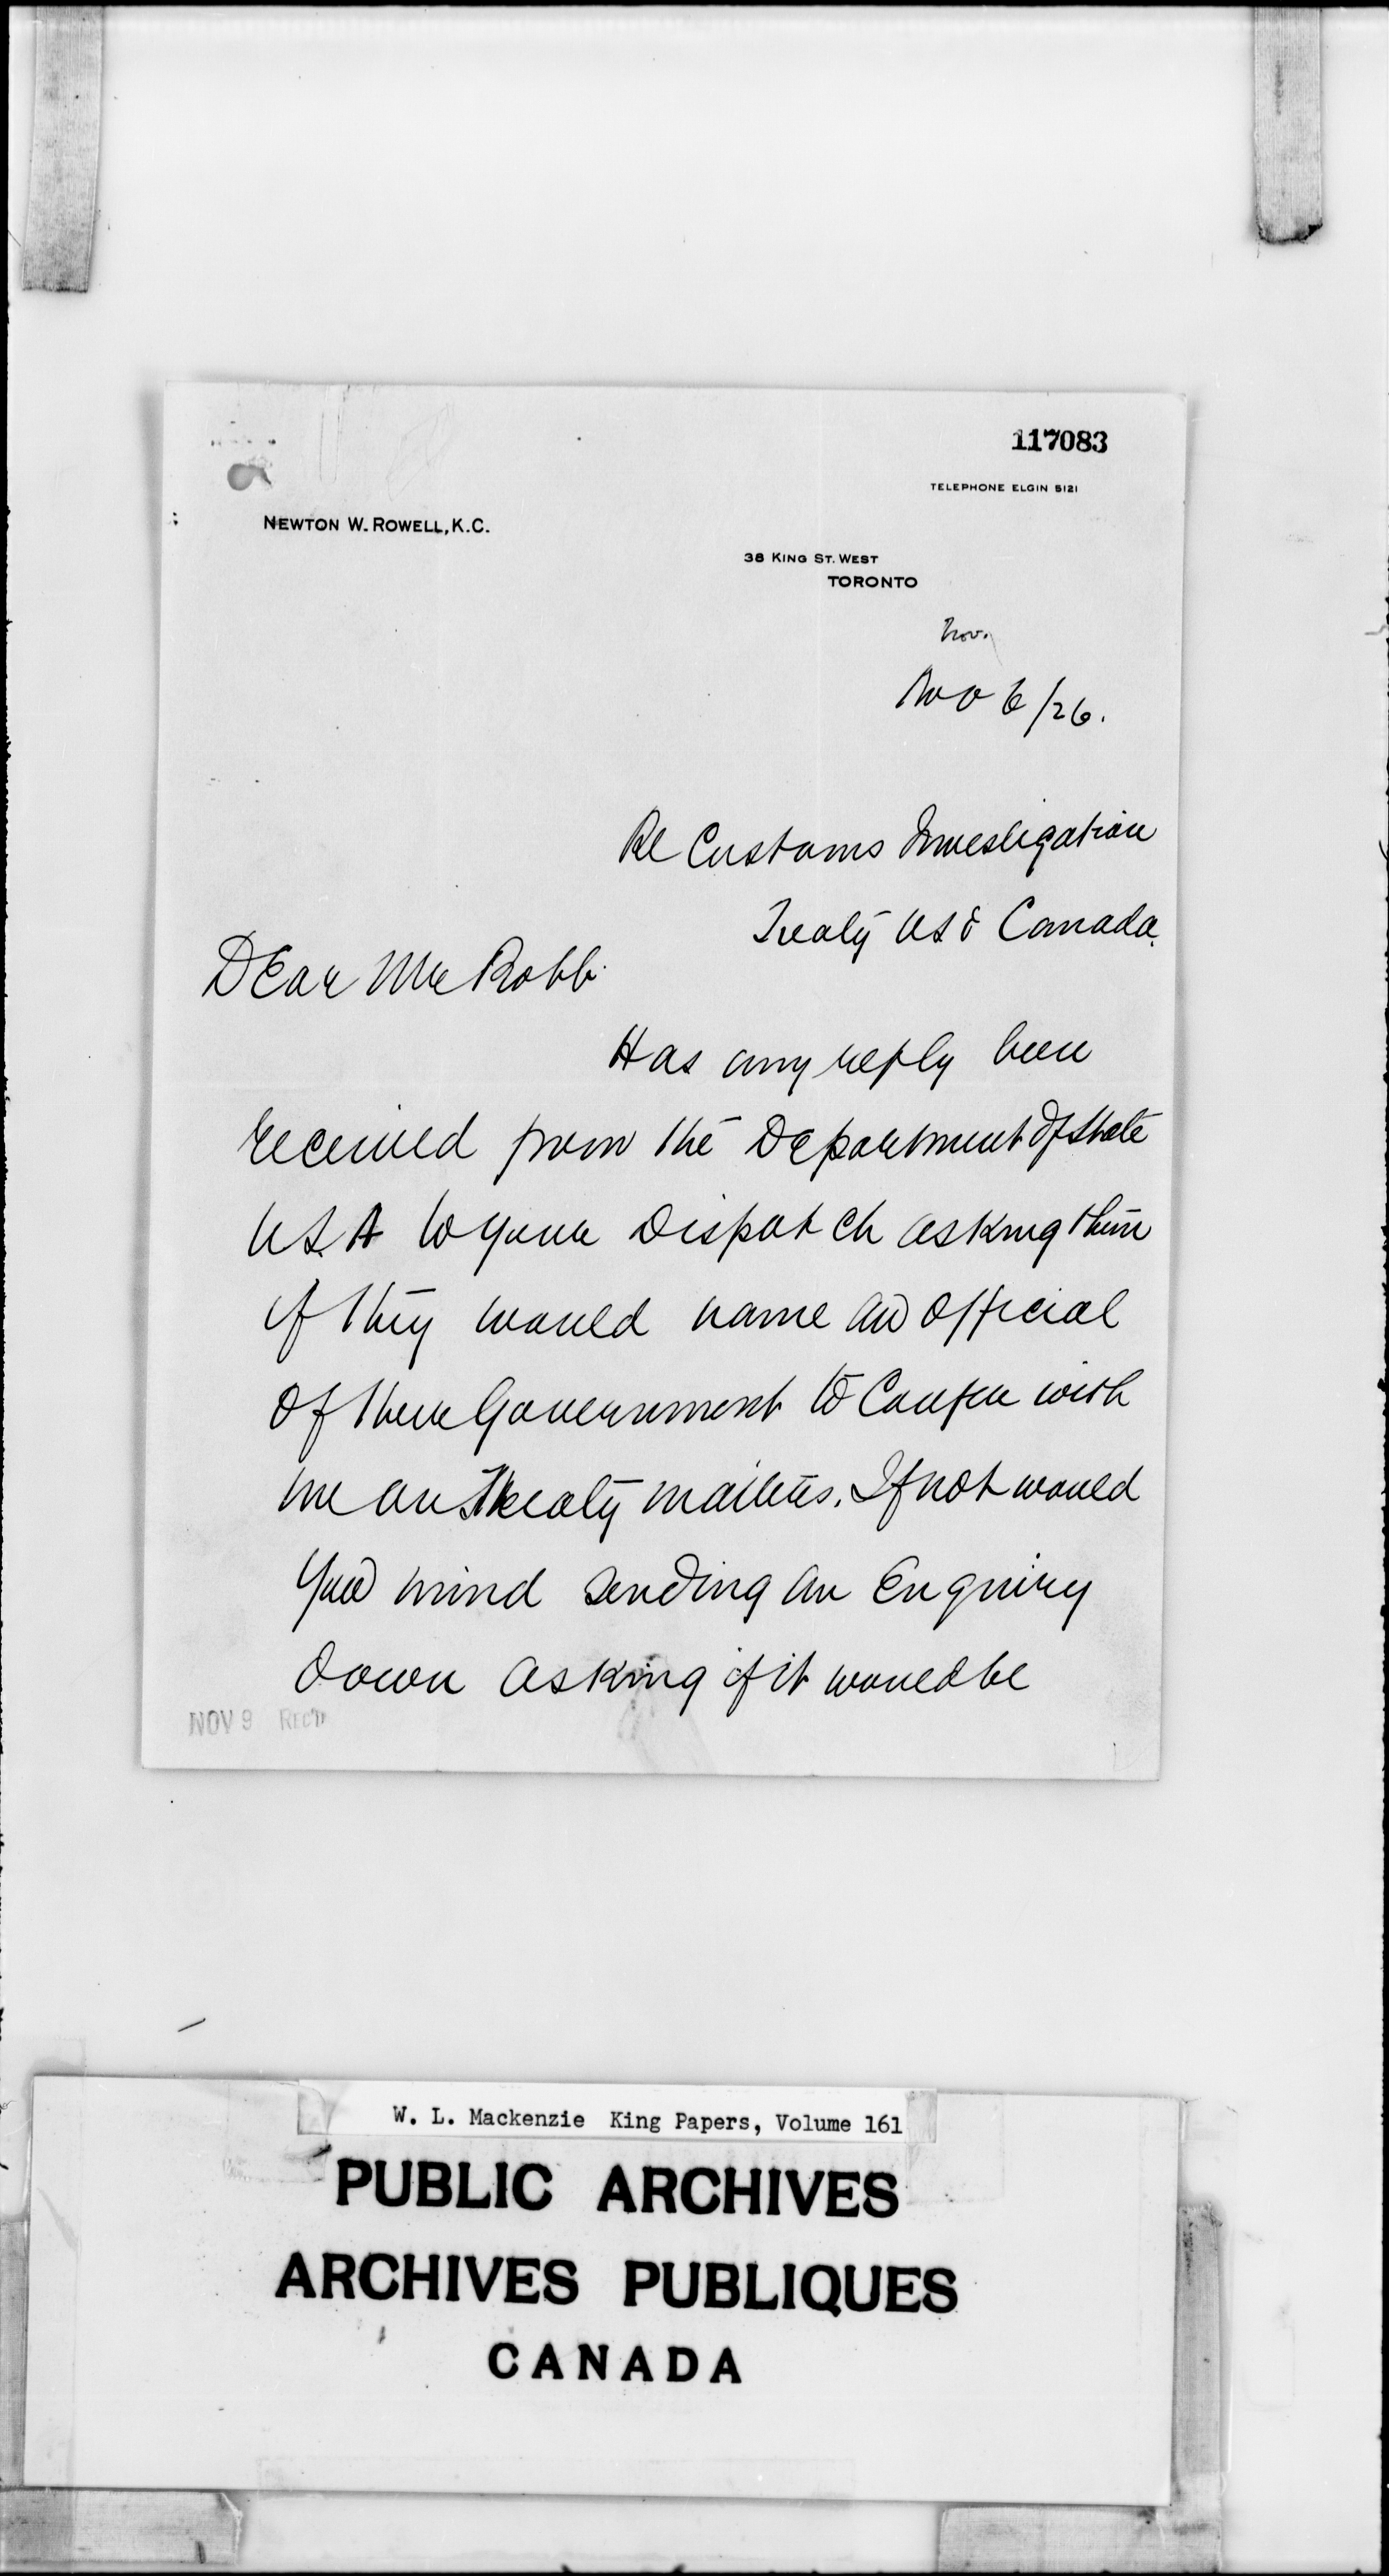 117083
TELEPHONE ELGIN 5121
NEWTON W. ROWELL, K.C.
38 KING ST. WEST
TORONTO
Nov.
Nov 6/26.
Re Customs Investigation
Treaty US & Canada.
Dear Mr Robb.
Has any reply been
received from the Department of State
U.S.A to your Dispatch asking them
if they would name an official
of their Government to Confer with
me on Treaty matters. If not would
you mind sending an Enquiry
down asking if it would be
NOV 9 REC'D
W. L. Mackenzie King Papers, Volume 161
PUBLIC ARCHIVES
ARCHIVES PUBLIQUES
CANADA